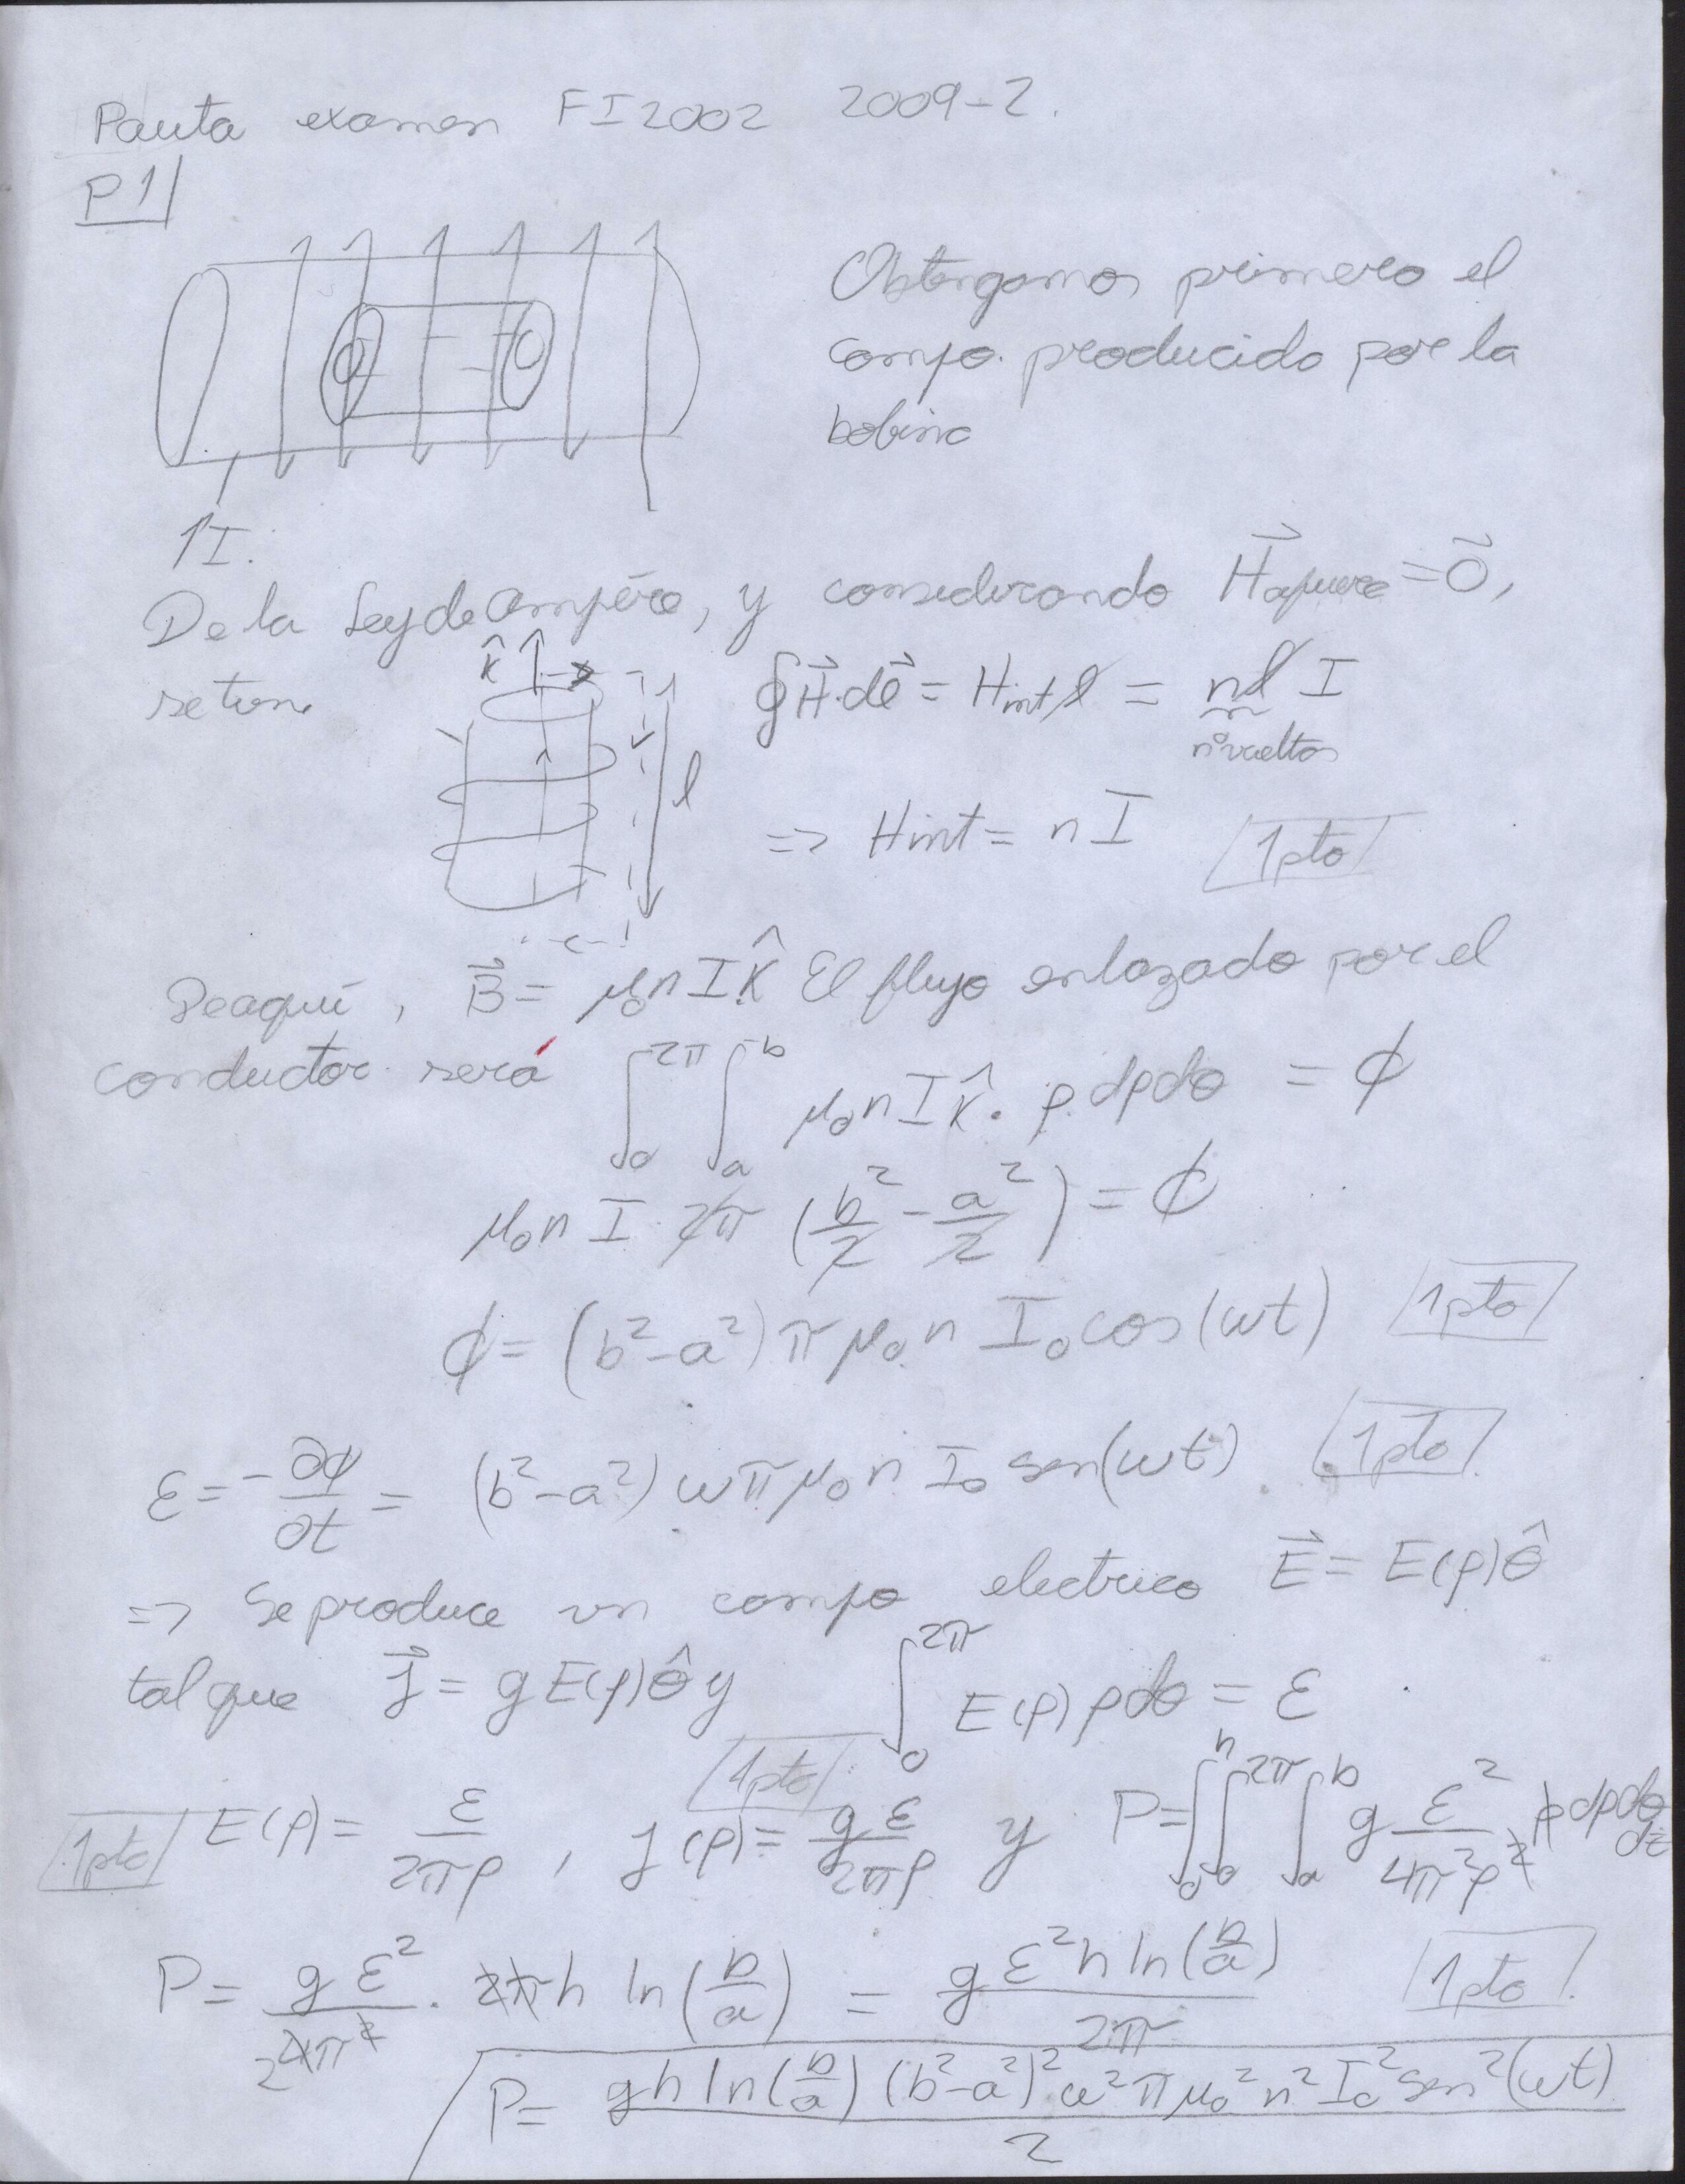 Pauta examen FI2002 2009-2.
P1
Obtengamos primero el
campo producido por la
bobina
↑I.
De la Ley de Ampère, y considerando H⃗afuera = 0⃗,
se tiene
k̂
l
∮H⃗·dl⃗ = Hint l = nl I
n° vueltas
=> Hint = nI 1pto
De aquí, B⃗ = μ₀nI k̂ El flujo enlazado por el
conductor será ∫₀^2π ∫ₐ^b μ₀nI k̂ · ρ dρdθ = φ
μ₀n I 2π (b²/2 - a²/2) = φ
φ = (b²-a²)πμ₀n I₀cos(ωt) 1pto
ε = -∂φ/∂t = (b²-a²)ωπμ₀n I₀ sen(ωt). 1pto
=> Se produce un campo electrico E⃗ = E(ρ)θ̂
tal que J⃗ = gE(ρ)θ̂ y ∫₀^2π E(ρ)ρdθ = ε
1pto
1pto E(ρ) = ε/2πρ, J(ρ) = gε/2πρ y P = ∫₀^h ∫₀^2π ∫ₐ^b g ε²/4π²ρ² ρdρdθdz
P = gε²/4π² · 2πh ln(b/a) = gε²h ln(b/a)/2π 1pto
P = gh ln(b/a)(b²-a²)²ω²πμ₀²n²I₀²sen²(ωt)/2